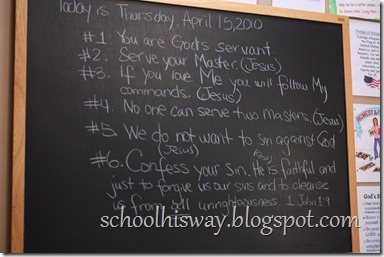 Today is Thursday, April 15, 2010
#1. You are God's servant.
#2. Serve your Master. (Jesus)
#3. If you love Me you will follow My
commands. (Jesus)
#4. No one can serve two masters. (Jesus)
#5 We do not want to sin against God
(Jesus)
#6. Confess your sin. He is faithful and
just to forgive us our sins and to cleanse
us from all unrighteousness. 1 John 1:9
schoolhisway.blogspot.com